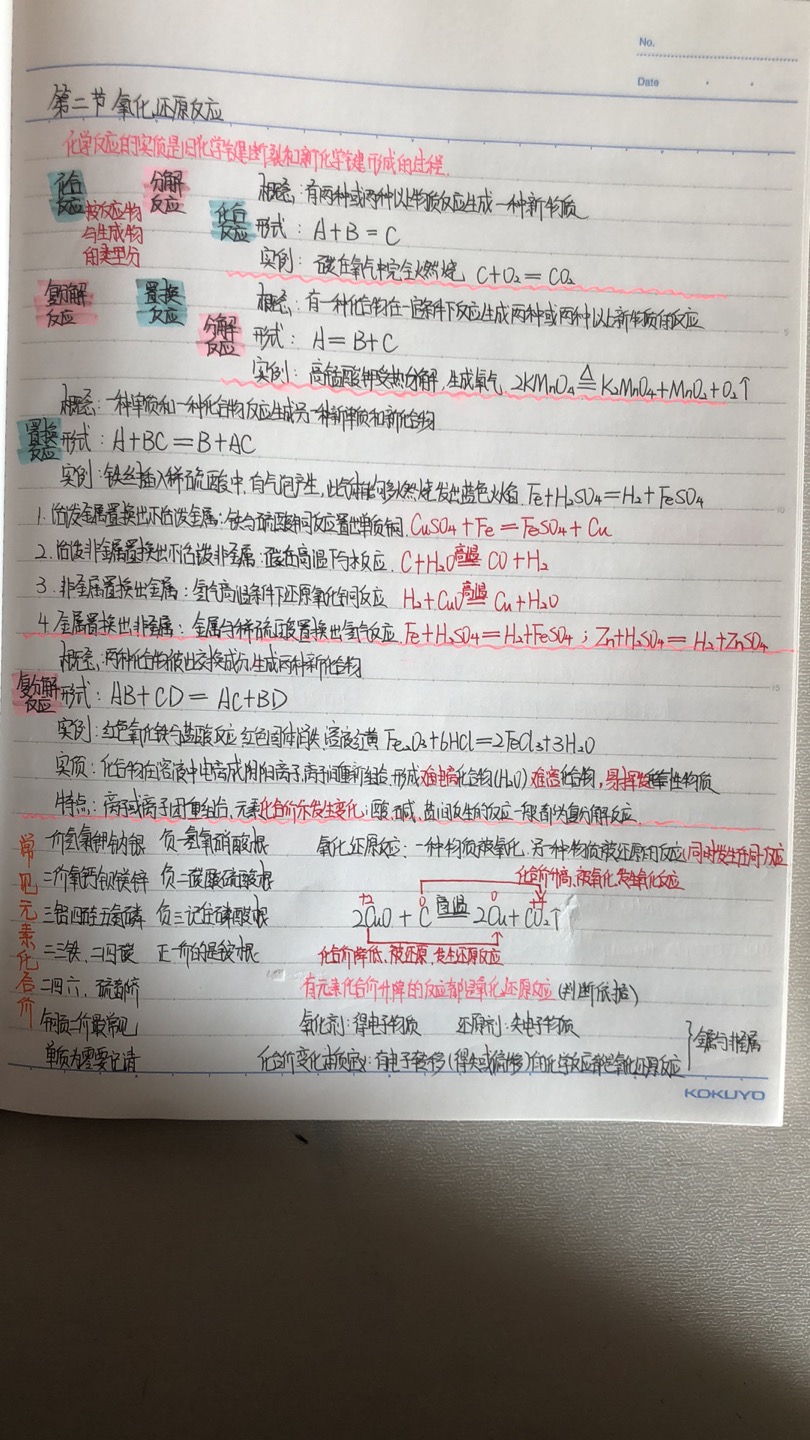 No.
Date
第二节 氧化还原反应
化学反应的实质是旧化学键断裂和新化学键形成的过程.
化合反应 分解反应
按反应物与生成物的类型分
复分解反应 置换反应
化合反应
概念:有两种或两种以上物质反应生成一种新物质
形式:A+B=C
实例:碳在氧气中完全燃烧 C+O₂=CO₂
分解反应
概念:有一种化合物在一定条件下反应生成两种或两种以上新物质的反应
形式:A=B+C
实例:高锰酸钾受热分解,生成氧气 2KMnO₄≜K₂MnO₄+MnO₂+O₂↑
置换反应
概念:一种单质和一种化合物反应生成另一种新单质和新化合物
形式:A+BC=B+AC
实例:铁丝插入稀硫酸中,有气泡产生,此气体能够燃烧发出蓝色火焰. Fe+H₂SO₄=H₂+FeSO₄
1.活泼金属置换出不活泼金属:铁与硫酸铜反应置出单质铜. CuSO₄+Fe=FeSO₄+Cu
2.活泼非金属置换出不活泼非金属:碳在高温下与水反应. C+H₂O 高温= CO+H₂
3.非金属置换出金属:氢气高温条件下还原氧化铜反应 H₂+CuO 高温= Cu+H₂O
4.金属置换出非金属:金属与稀硫酸置换出氢气反应. Fe+H₂SO₄=H₂+FeSO₄;Zn+H₂SO₄=H₂+ZnSO₄
复分解反应
概念:两种化合物彼此交换成分,生成两种新化合物
形式:AB+CD=AC+BD
实例:红色氧化铁与盐酸反应 红色固体消失,溶液红黄 Fe₂O₃+6HCl=2FeCl₃+3H₂O
实质:化合物在溶液中电离成阴阳离子,离子间重新组合,形成难电离化合物(H₂O) 难溶化合物,易挥发性物质
特点:离子或离子团重组合,元素化合价不发生变化;酸、碱、盐间发生的反应一般都为复分解反应.
常见元素化合价
一价氢氯钾钠银 负一氢氧硝酸根
二价氧钙钡镁锌 负二碳酸硫酸根
三铝四硅五氮磷 负三记住磷酸根
二三铁、二四碳 正一价的是铵根
二四六、硫都齐
铜汞二价最常见
单质为零要记清
氧化还原反应:一种物质被氧化,另一种物质被还原的反应(同时发生在同一反应
化合价升高,被氧化,发生氧化反应
+2 0 0 +4
2CuO + C 高温= 2Cu+CO₂↑
化合价降低、被还原、发生还原反应
有元素化合价升降的反应都是氧化还原反应(判断依据)
氧化剂:得电子物质 还原剂:失电子物质
化合价变化本质:有电子转移(得失或偏移)的化学反应都是氧化还原反应
金属与非金属
KOKUYO